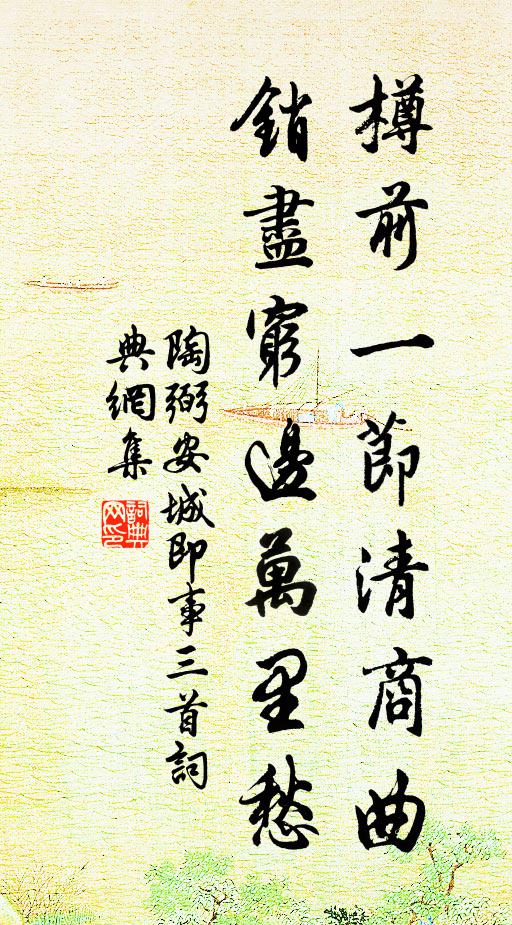 樽前一節清商曲
銷盡窮邊萬里愁
陶弼安城即事三首詞
典網集
詞典
网印